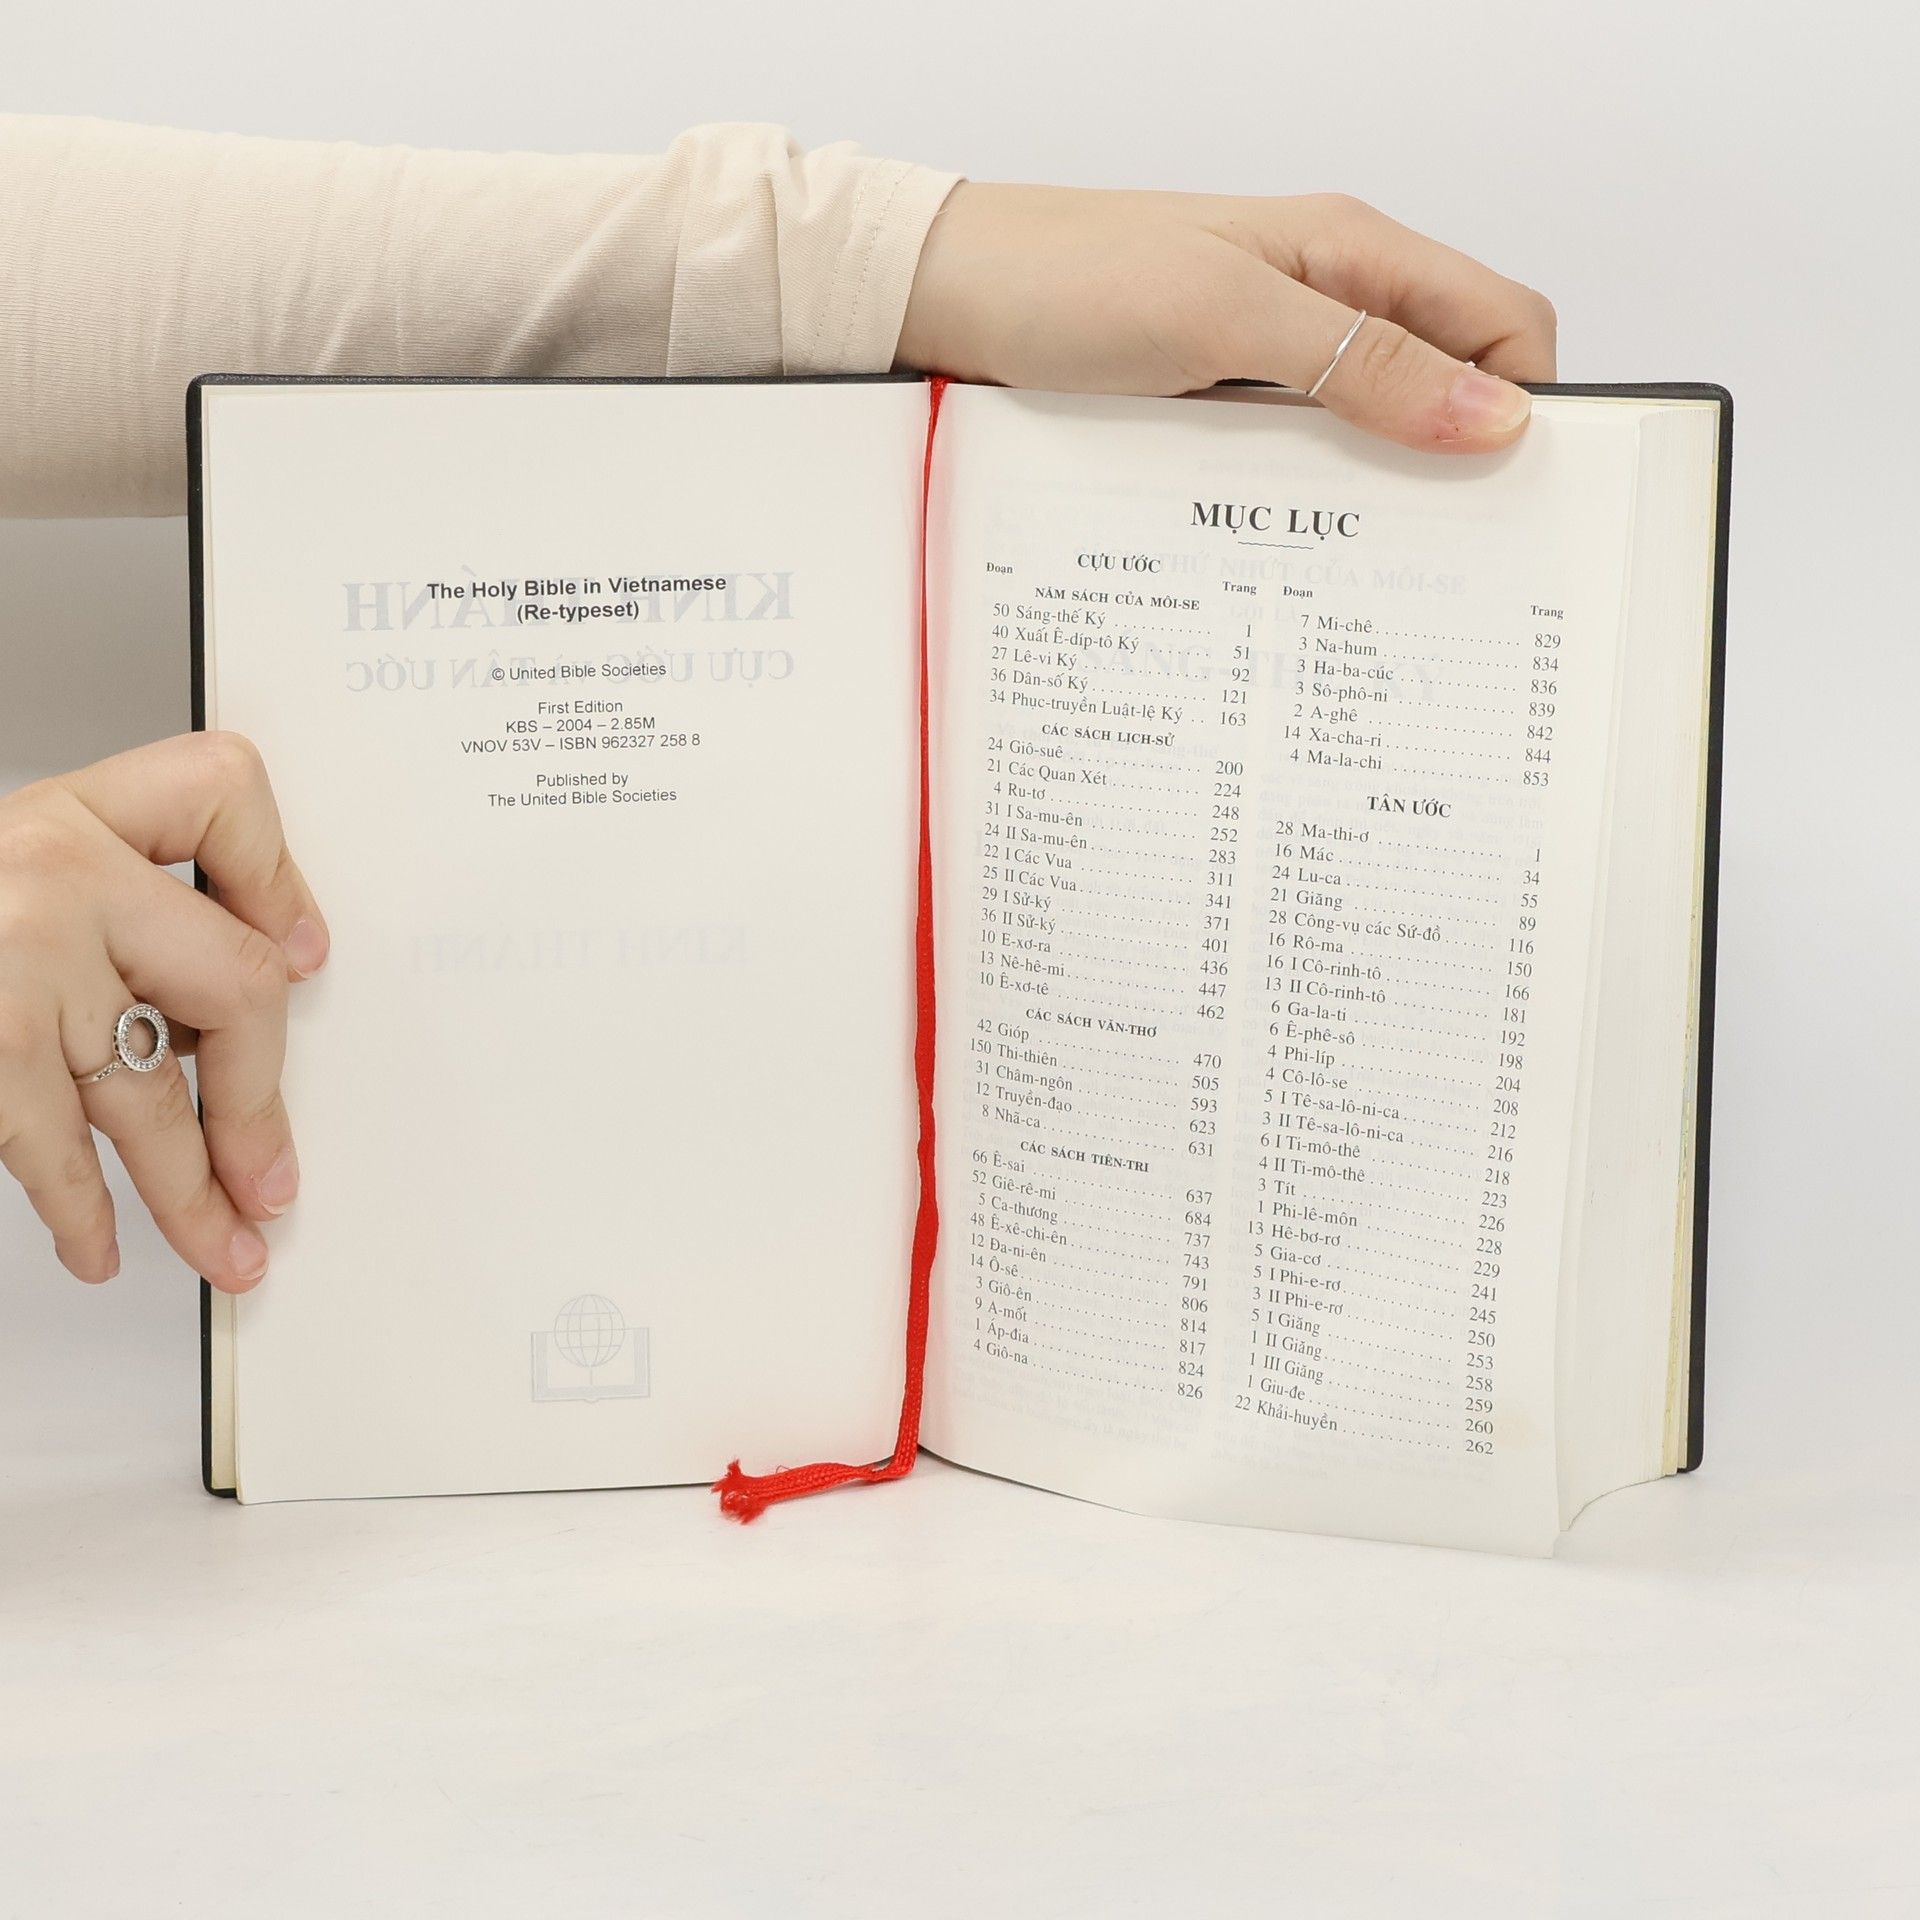 The Holy Bible in Vietnamese
(Re-typeset)
© United Bible Societies
First Edition
KBS – 2004 – 2.85M
VNOV 53V – ISBN 962327 258 8
Published by
The United Bible Societies
KINH THÁNH
CỰU ƯỚC VÀ TÂN ƯỚC
MỤC LỤC
CỰU ƯỚC
Đoạn Trang
NĂM SÁCH CỦA MÔI-SE
50 Sáng-thế Ký ........... 1
40 Xuất Ê-díp-tô Ký ....... 51
27 Lê-vi Ký ........... 92
36 Dân-số Ký ........... 121
34 Phục-truyền Luật-lệ Ký .. 163
CÁC SÁCH LỊCH-SỬ
24 Giô-suê ............ 200
21 Các Quan Xét ........... 224
4 Ru-tơ ............ 248
31 I Sa-mu-ên ........... 252
24 II Sa-mu-ên ........... 283
22 I Các Vua ........... 311
25 II Các Vua ........... 341
29 I Sử-ký ............ 371
36 II Sử-ký ............ 401
10 E-xơ-ra ............ 436
13 Nê-hê-mi ............ 447
10 Ê-xơ-tê ............ 462
CÁC SÁCH VĂN-THƠ
42 Gióp ............ 470
150 Thi-thiên ............ 505
31 Châm-ngôn ........... 593
12 Truyền-đạo ........... 623
8 Nhã-ca ............ 631
CÁC SÁCH TIÊN-TRI
66 Ê-sai ............ 637
52 Giê-rê-mi ............ 684
5 Ca-thương ............ 737
48 Ê-xê-chi-ên ........... 743
12 Đa-ni-ên ............ 791
14 Ô-sê ............ 806
3 Giô-ên ............ 814
9 A-mốt ............ 817
1 Áp-đia ............ 824
4 Giô-na ............ 826
Đoạn Trang
7 Mi-chê ............ 829
3 Na-hum ............ 834
3 Ha-ba-cúc ............ 836
3 Sô-phô-ni ............ 839
2 A-ghê ............ 842
14 Xa-cha-ri ............ 844
4 Ma-la-chi ............ 853
TÂN ƯỚC
28 Ma-thi-ơ ............ 1
16 Mác ............ 34
24 Lu-ca ............ 55
21 Giăng ............ 89
28 Công-vụ các Sứ-đồ ...... 116
16 Rô-ma ............ 150
16 I Cô-rinh-tô ........... 166
13 II Cô-rinh-tô .......... 181
6 Ga-la-ti ............ 192
6 Ê-phê-sô ............ 198
4 Phi-líp ............ 204
4 Cô-lô-se ............ 208
5 I Tê-sa-lô-ni-ca ......... 212
3 II Tê-sa-lô-ni-ca ........ 216
6 I Ti-mô-thê ........... 218
4 II Ti-mô-thê ........... 223
3 Tít ............ 226
1 Phi-lê-môn ........... 228
13 Hê-bơ-rơ ............ 229
5 Gia-cơ ............ 241
5 I Phi-e-rơ ............ 245
3 II Phi-e-rơ ............ 250
5 I Giăng ............ 253
1 II Giăng ............ 258
1 III Giăng ............ 259
1 Giu-đe ............ 260
22 Khải-huyền ........... 262